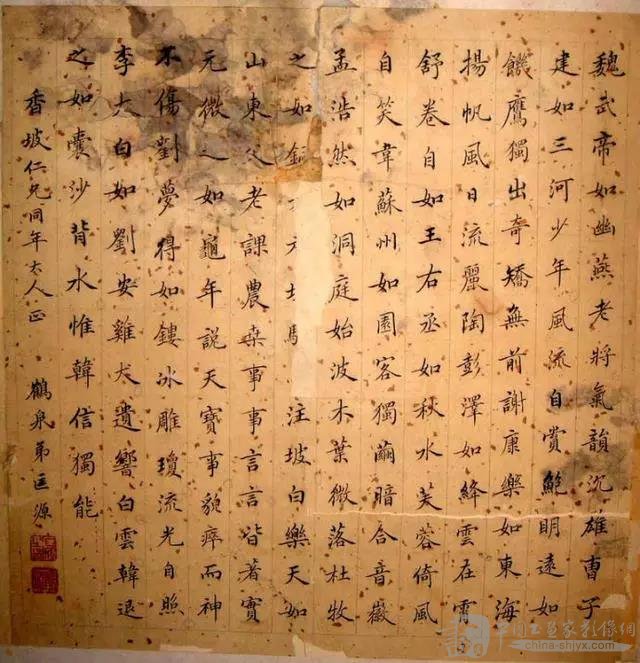 魏武帝如幽燕老將氣韻沉雄曹子
建如三河少年風流自賞鮑明遠如
饑鷹獨出奇矯無前謝康樂如東海
揚帆風日流麗陶彭澤如絳雲在霄
舒卷自如王右丞如秋水芙蓉倚風
自笑韋蘇州如園客獨繭暗合音徽
孟浩然如洞庭始波木葉微落杜牧
之如注坡白樂天如
山東父老課農桑事事言言皆著實
元微之如龜年說天寶事貌瘁而神
不傷劉夢得如鏤冰雕瓊流光自照
李太白如劉安雞犬遺響白雲韓退
之如囊沙背水惟韓信獨能
香坡仁兄同年大人正
鶴泉弟匡源
中國書畫家影像網
china-shjyx.com